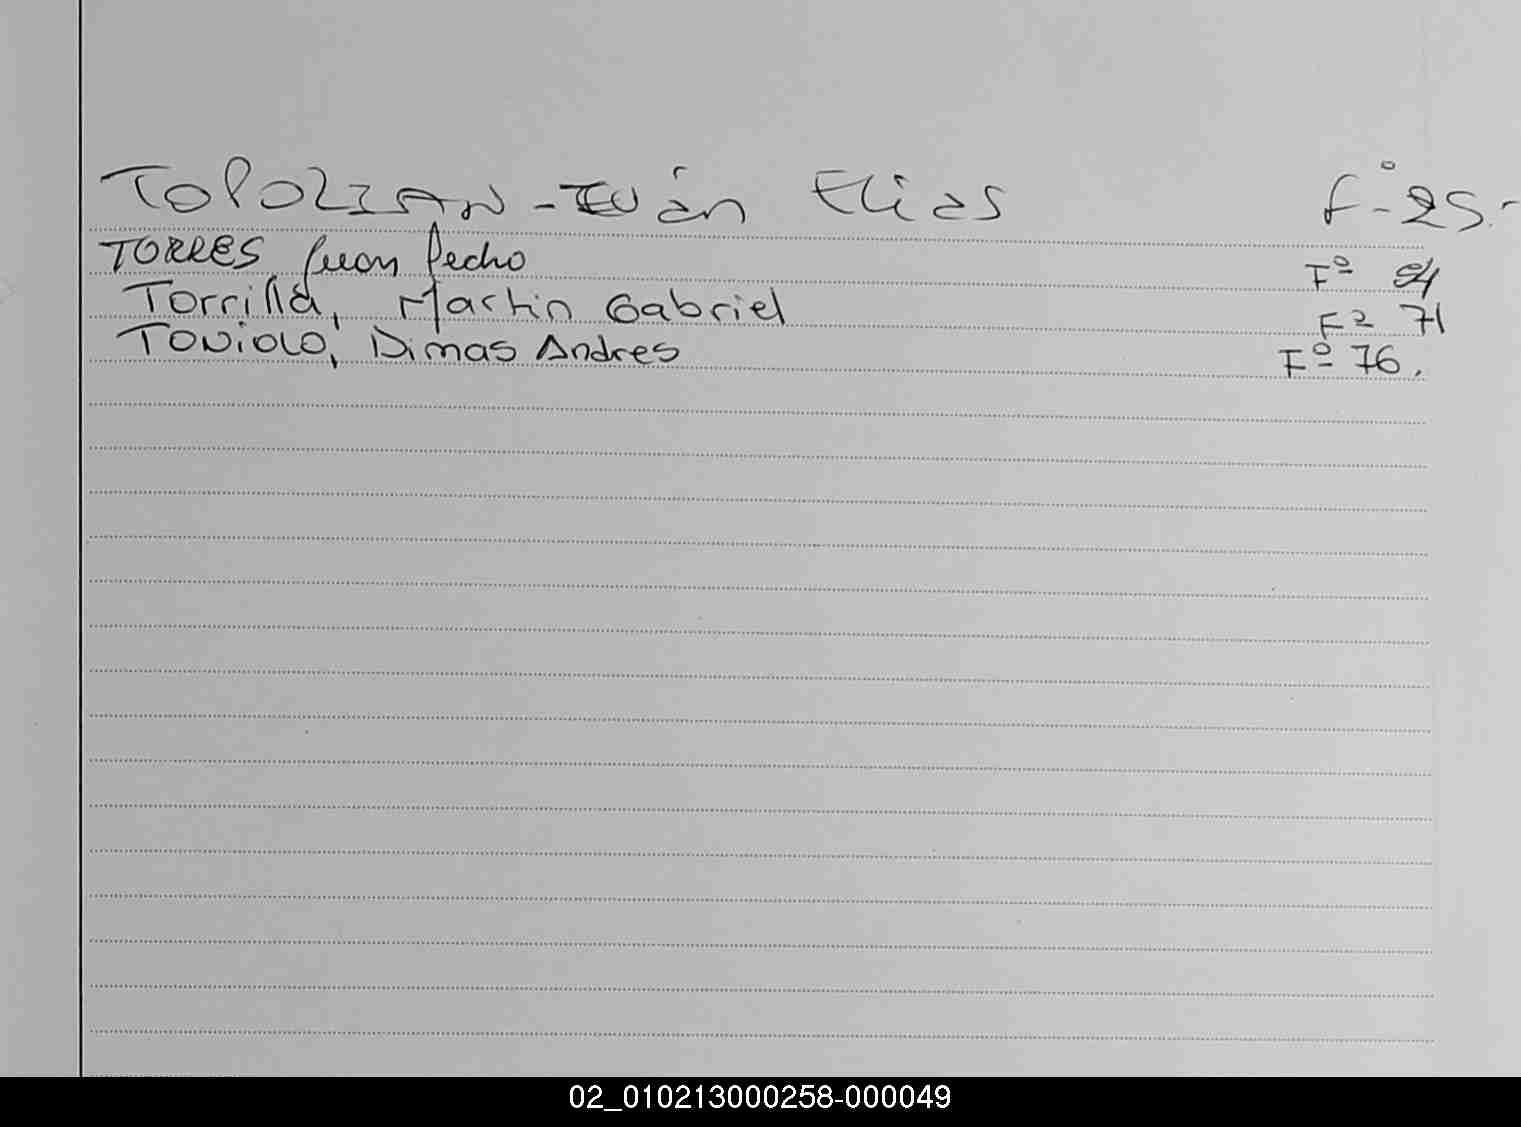 TOPOLIAN - Iván Elias F° - 25.-
TORRES Juan Pedro Fº
Torrilla, Martin Gabriel Fº 71
TONIOLO, Dimas Andres Fº 76.
02_010213000258-000049